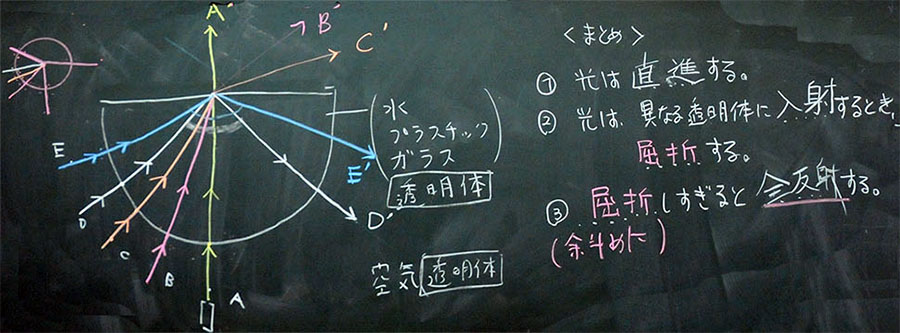 A'
B'
C'
E
D
C
B
A
E'
D'
水
プラスチック
ガラス
透明体
空気 透明体
<まとめ>
① 光は直進する。
② 光は、異なる透明体に入射するとき、
屈折する。
③ 屈折しすぎると全反射する。
(余斗めに)